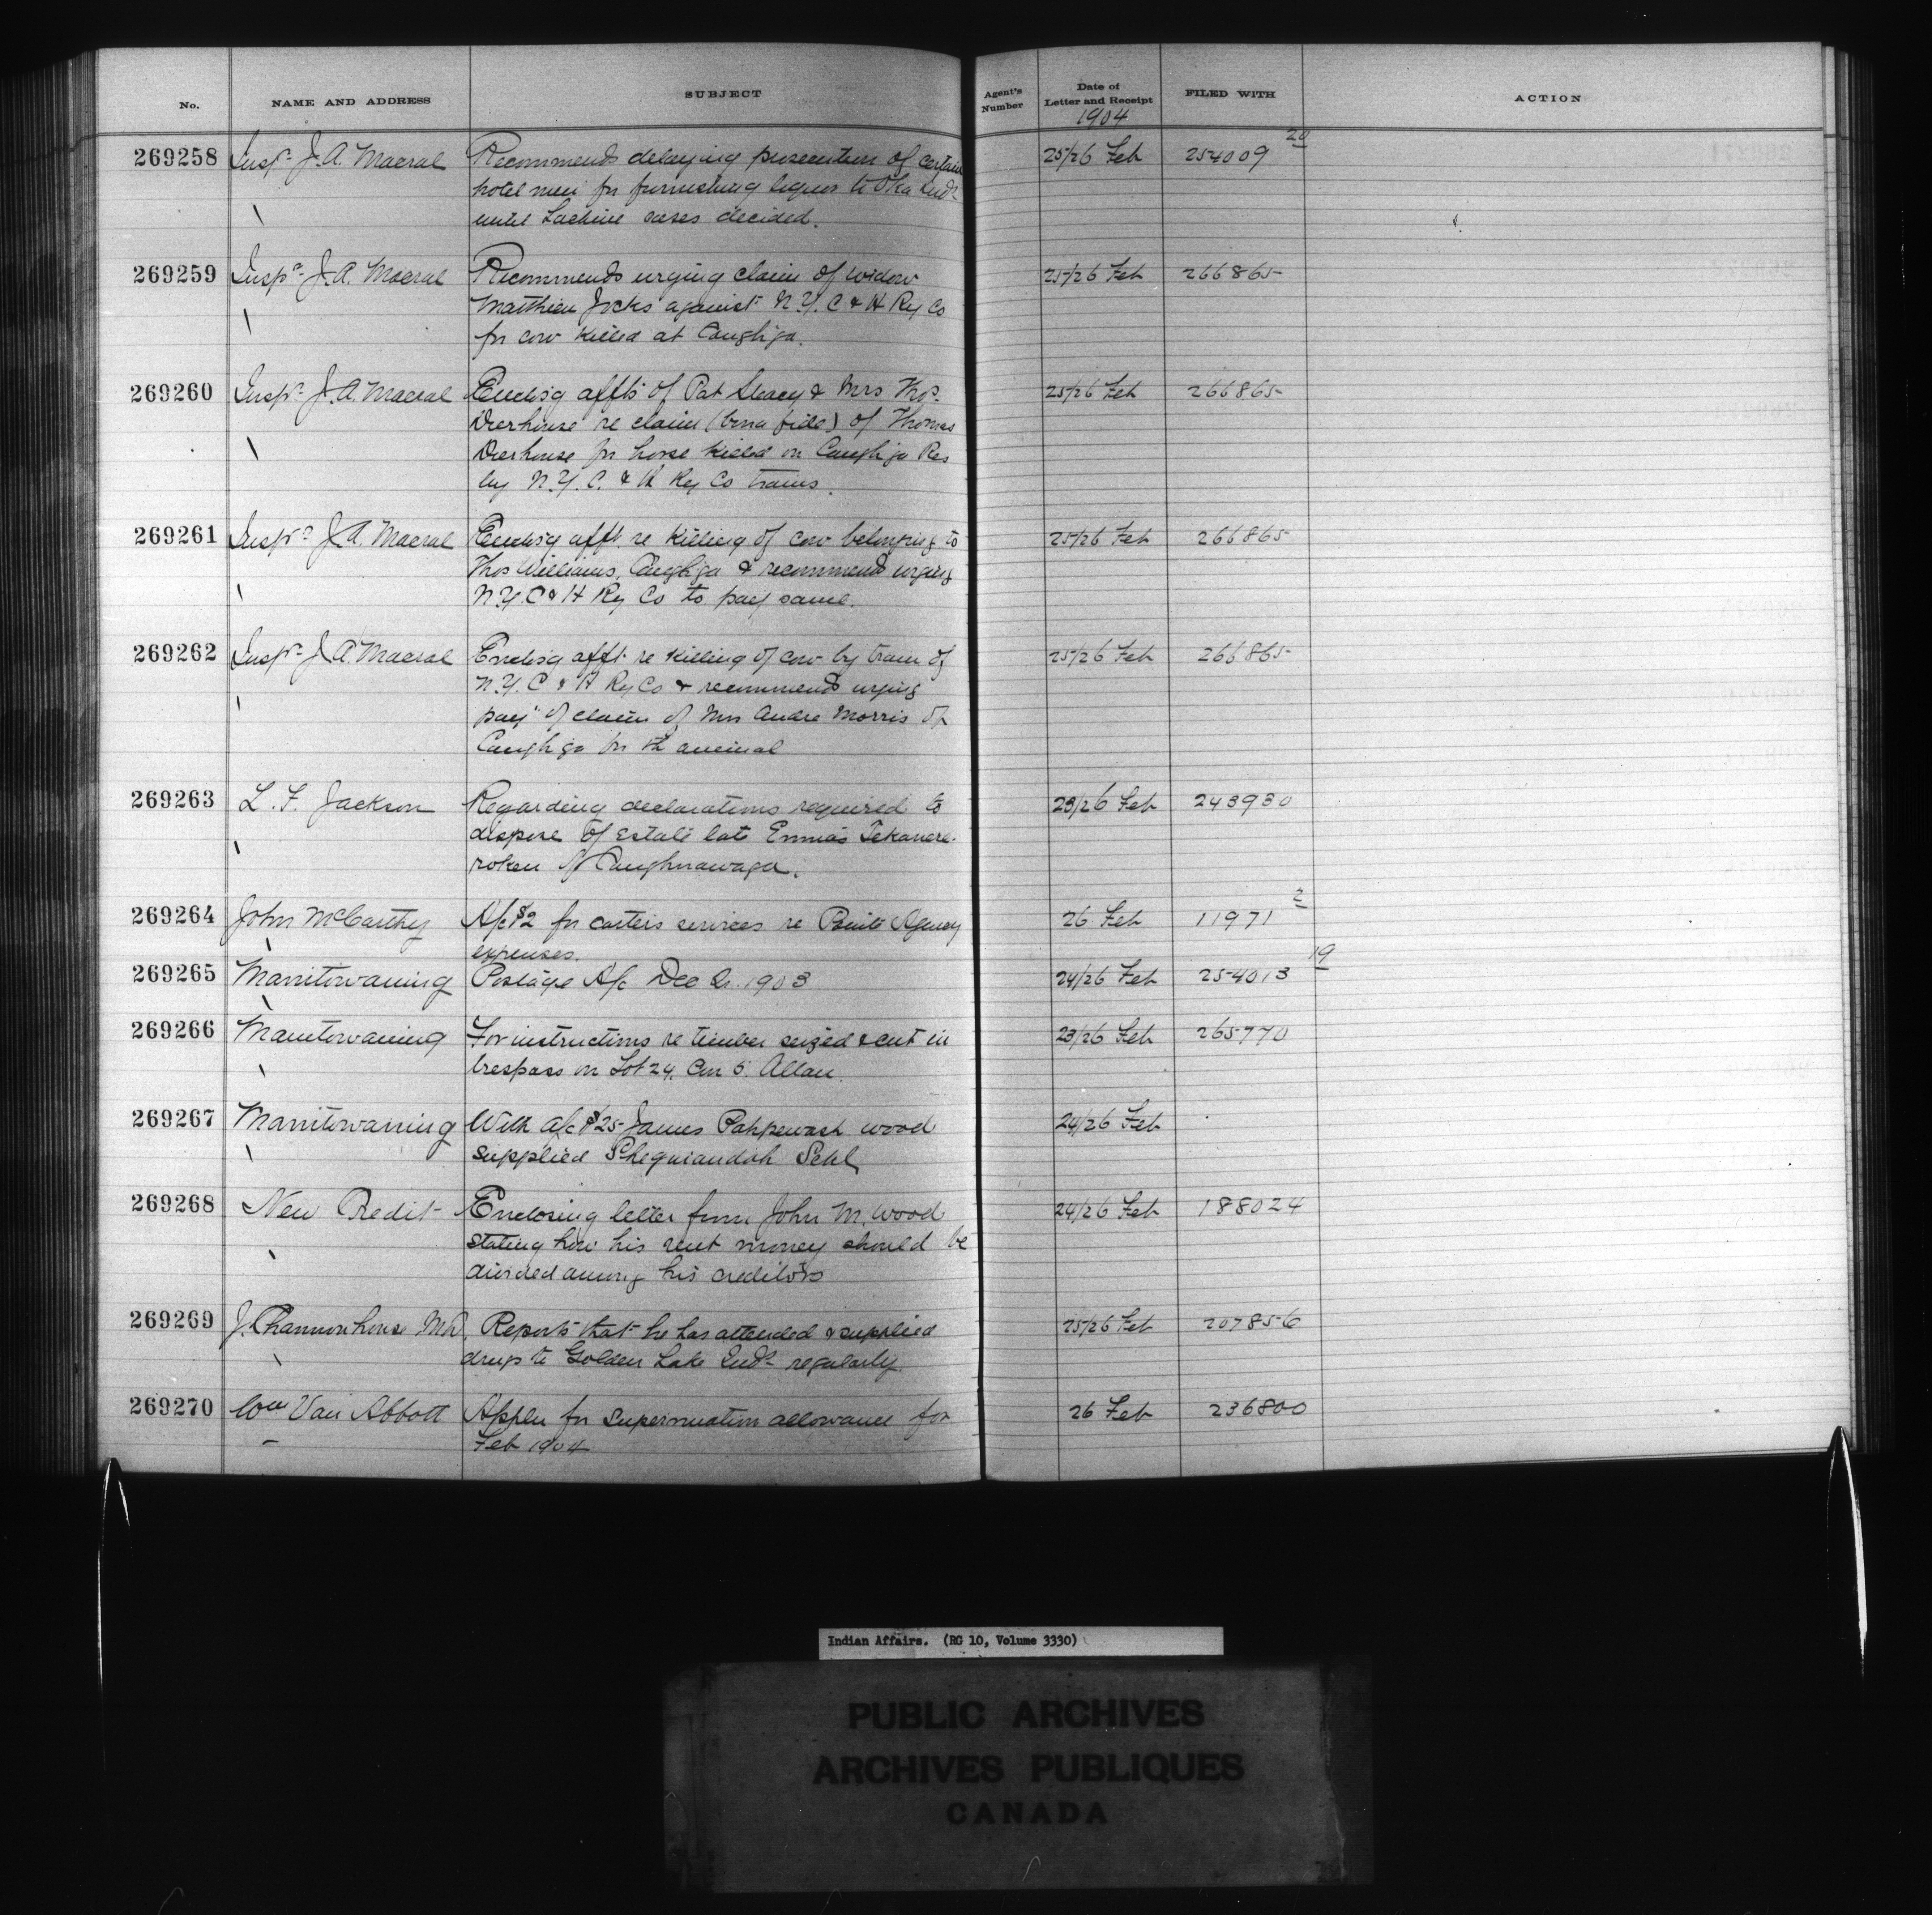 No. NAME AND ADDRESS SUBJECT Agent's Number Date of Letter and Receipt FILED WITH ACTION
1904
269258 Inspr. J. A. Macrae Recommends delaying prosecution of certain 25/26 Feb 254009 20
hotel men for furnishing liquor to Oka Inds.
until Lachine cases decided.
269259 Inspr. J. A. Macrae Recommends urging claim of widow 25/26 Feb 266865
Matthieu Jocks against N.Y. C & H Ry Co
for cow killed at Caughga.
269260 Inspr. J. A. Macrae Enclosg affts of Pat Steacy & Mrs Thos. 25/26 Feb 266865
Deerhouse re claim (bona fide) of Thomas
Deerhouse for horse killed on Caughga Res
by N.Y. C. & H Ry Co trains.
269261 Inspr. J. A. Macrae Enclosg afft. re killing of cow belonging to 25/26 Feb 266865
Thos Williams, Caughga & recommend urging
N.Y. C & H Ry Co to pay same.
269262 Inspr. J. A. Macrae Enclosg afft. re killing of cow by train of 25/26 Feb 266865
N.Y. C & H Ry Co & recommend urging
payt of claim of Mrs Andre Morris of
Caughga for th animal
269263 L. F. Jackson Regarding declarations required to 23/26 Feb 243930
dispose of estate late Ennias Tekanere-
roken of Caughnawaga.
269264 John McCarthy A/c $2 for carters services re Agency 26 Feb 11971 2
expenses.
269265 Manitowaning Postage A/c Dec Qr. 1903 24/26 Feb 254013 19
269266 Manitowaning For instructions re timber seized & cut in 23/26 Feb 265770
trespass on Lot 24, Con 5. Allan.
269267 Manitowaning With a/c $25 James Pahpewash wood 24/26 Feb
supplied Sheguiandah Schl
269268 New Credit Enclosing letter from John M. Wood 24/26 Feb 188024
stating how his rent money should be
divided among his creditors
269269 J. Channonhouse MD. Reports that he has attended & supplied 25/26 Feb 207856
drugs to Golden Lake Inds. regularly
269270 Wm Van Abbott Appln for superannuation allowance for 26 Feb 236800
Feb 1904
Indian Affairs. (RG 10, Volume 3330)
PUBLIC ARCHIVES
ARCHIVES PUBLIQUES
CANADA